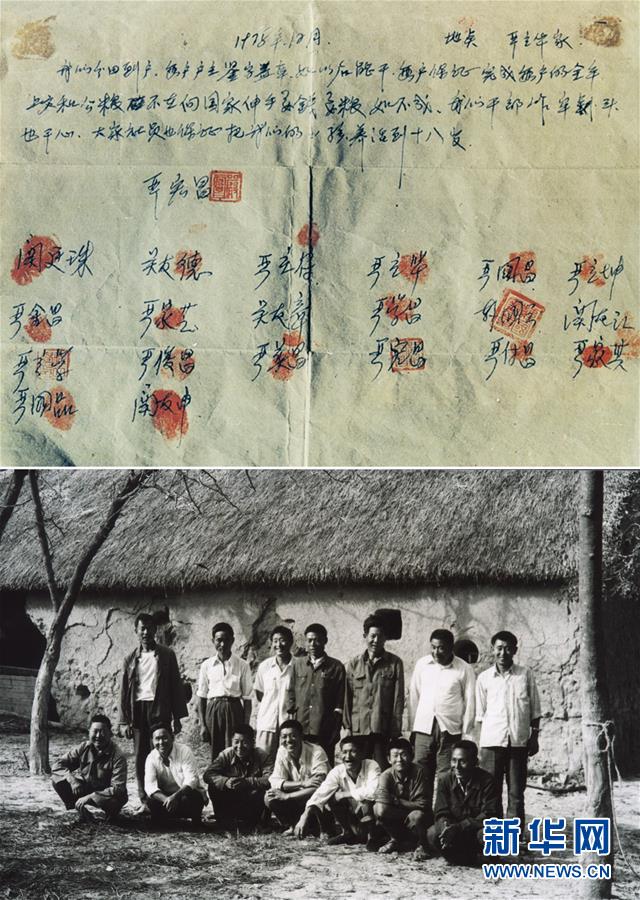 1978年12月. 地点 严立华家.
我们分田到户, 每户户主签字盖章, 如以后能干, 每户保证完成每户的全年
上交和公粮 不在向国家伸手要钱要粮 如不成, 我们干部作牢刹头
也干心, 大家社员也保证把我们的小孩养活到十八岁.
严宏昌
关廷珠 关友德 严立符 严立华 严国昌 严立坤
严金昌 严家芝 关友章 严学昌 韩国云 关友江
严立学 严俊昌 严美昌 严宏昌 严付昌 严家其
严国品 关友申
新华网
WWW.NEWS.CN